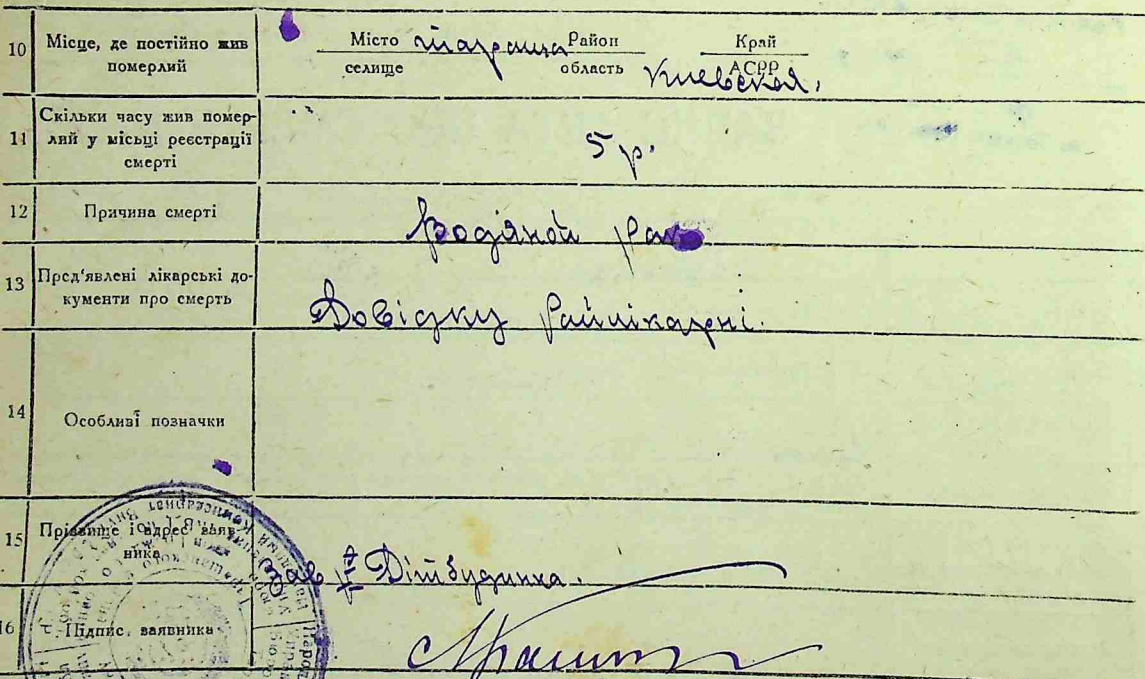 10 Місце, де постійно жив померлий
Місто Тараща Район Край
селище область АСРР Киевская.
11 Скільки часу жив помер-
лий у місьці реєстрації
смерті
5 р.
12 Причина смерті
Водяной рак
13 Пред'явлені лікарські до-
кументи про смерть
Довідку райлікарні.
14 Особливі позначки
15 Прізвище і адрес заяв-
ника
Зав Дитбудинка.
16 Підпис заявника